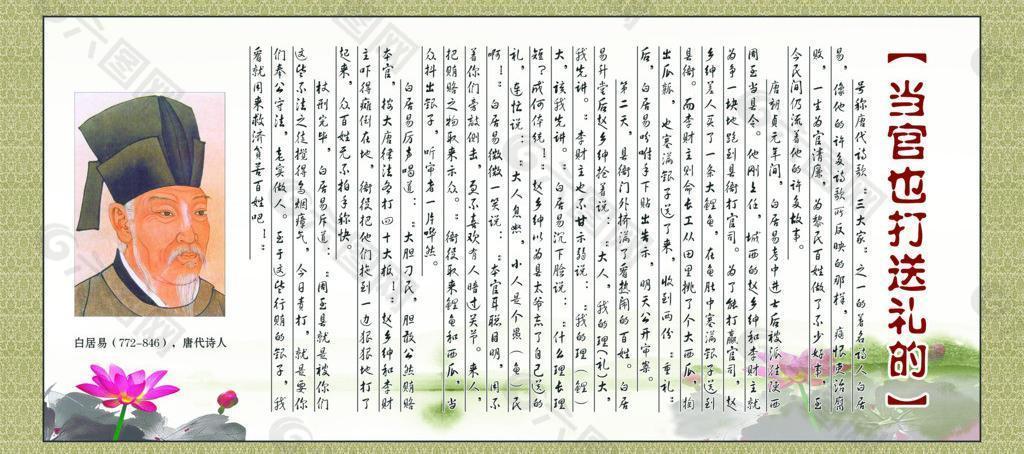 【当官也打送礼的】
号称唐代诗歌:三大家:之一的著名诗人白居
易,像他的许多诗歌所反映的那样,痛恨吏治腐
败,一生为官清廉,为黎民百姓做了不少好事,至
今民间仍流着他的许多故事。
唐朝贞元年间,白居易考中进士后被派往陕西
周至当县令。他刚上任,城西的赵乡绅和李财主就
为争一块地跑到县衙打官司。为了能打赢官司,赵
乡绅差人买了一条大鲤鱼,在鱼肚中塞满银子送到
县衙。而李财主则命长工从田里挑了个大西瓜,掏
出瓜瓤,也塞满银子送了来,收到两份:重礼:
后,白居易吩咐手下贴出告示,明天公开审案。
第二天,县衙门外挤满了看热闹的百姓。白居
易升堂后赵乡绅抢着说:大人,我的理(礼)大,
我先讲。:李财主也不甘示弱说:我的理(鲤)
大,该我先讲。:白居易沉下脸说::什么理长理
短?成何体统!:赵乡绅以为县太爷忘了自己送的
礼,连忙说::大人息怒,小人是个愚(鱼)民
啊!:白居易微微一笑说::本官耳聪目明,用不
着你们旁敲侧击,更不喜欢有人暗过关节。来人,
把贿赂之物取来示众。:衙役取来鲤鱼和西瓜,当
众抖出银子,听审者一片哗然。
白居易厉声喝道::大胆刁民,胆敢公然贿赂
本官,按大唐律法各打四十大板!:赵乡绅和李财
主吓得瘫倒在地,衙役把他们拖到一边狠狠地打了
起来,众百姓无不拍手称快。
杖刑完毕,白居易斥道::周至县就是被你们
这些不法之徒搅得乌烟瘴气,今日责打,就是要你
们奉公守法,老实做人。至于这些行贿的银子,我
看就用来救济贫苦百姓吧!:
白居易(772-846),唐代诗人